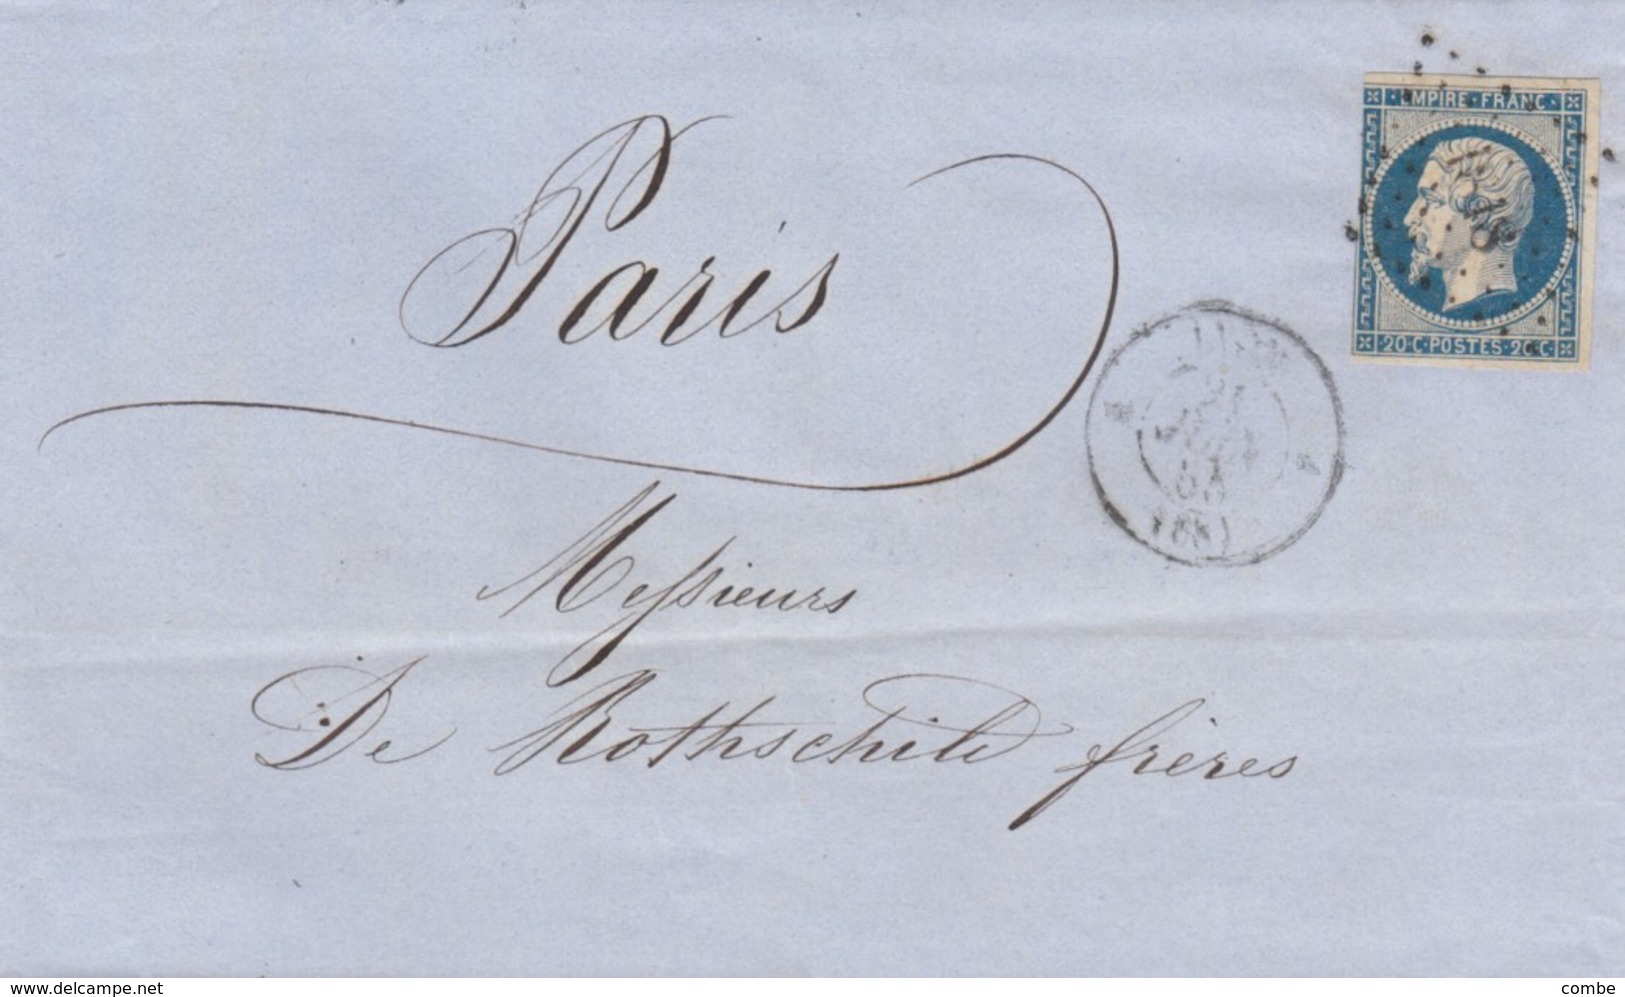 Paris
EMPIRE·FRANC·
20·C·POSTES·20·C·
Messieurs
De Rothschild frères
delcampe.net
combe